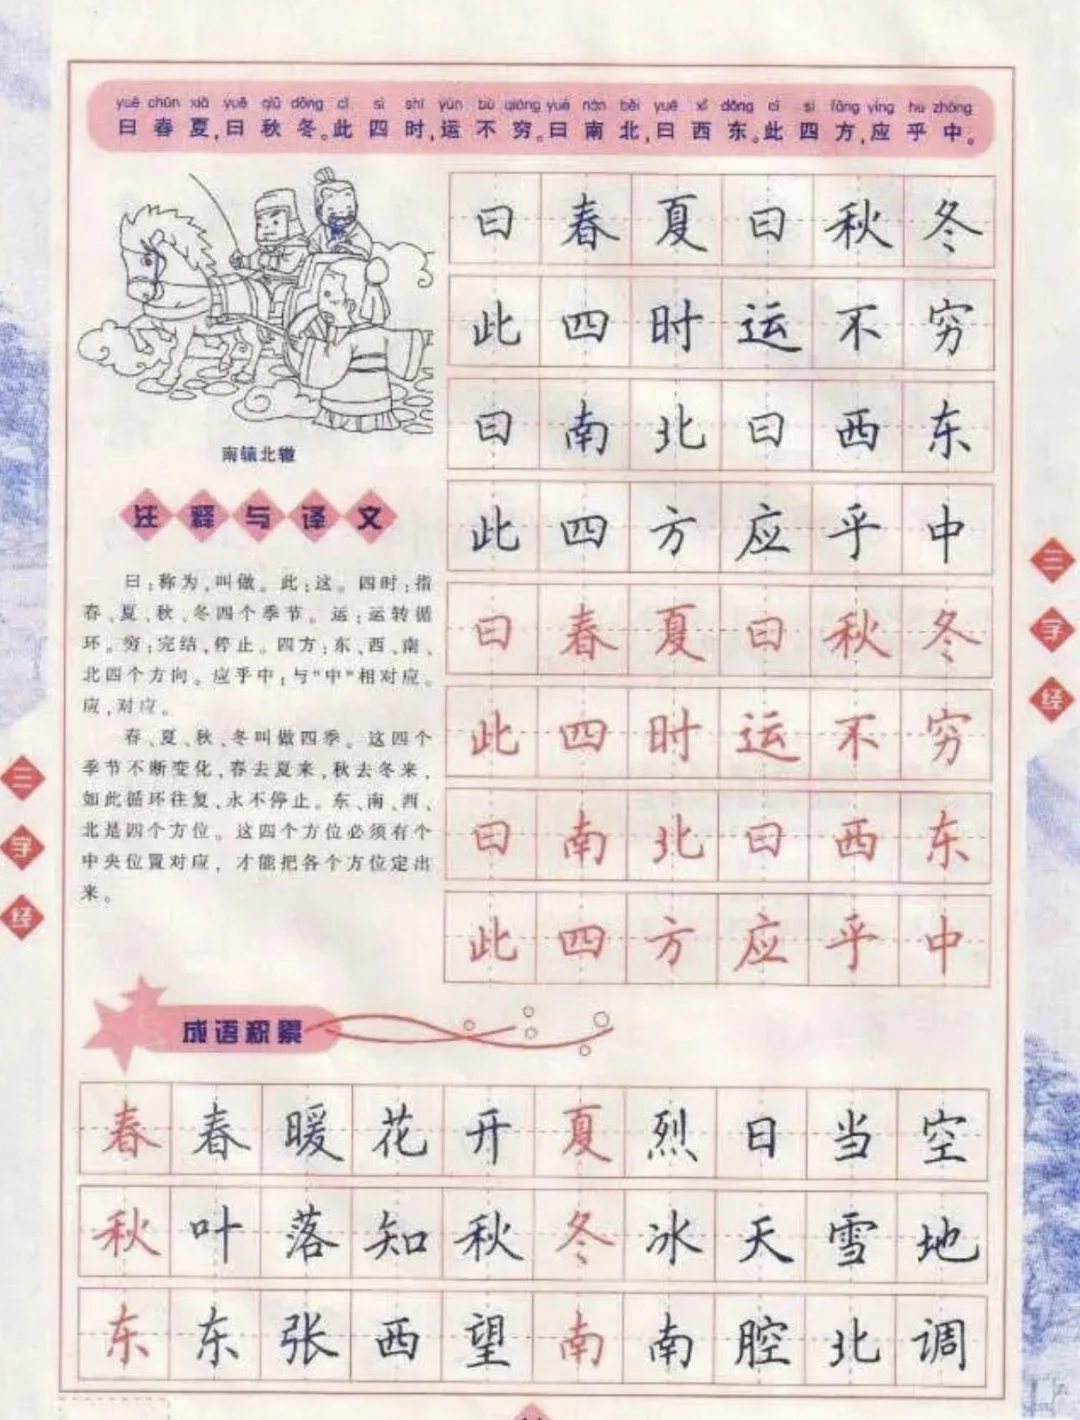 yuē chūn xià yuē qiū dōng cǐ sì shí yùn bù qióng yuē nán běi yuē xī dōng cǐ sì fāng yìng hū zhōng
曰春夏,曰秋冬。此四时,运不穷。曰南北,曰西东。此四方,应乎中。
曰春夏曰秋冬
此四时运不穷
曰南北曰西东
此四方应乎中
曰春夏曰秋冬
此四时运不穷
曰南北曰西东
此四方应乎中
南辕北辙
注释与译文
曰:称为,叫做。此:这。四时:指
春、夏、秋、冬四个季节。运:运转循
环。穷:完结,停止。四方:东、西、南、
北四个方向。应乎中:与“中”相对应。
应,对应。
春、夏、秋、冬叫做四季。这四个
季节不断变化,春去夏来,秋去冬来,
如此循环往复,永不停止。东、南、西、
北是四个方位。这四个方位必须有个
中央位置对应,才能把各个方位定出
来。
三字经
三字经
成语积累
春春暖花开夏烈日当空
秋叶落知秋冬冰天雪地
东东张西望南南腔北调